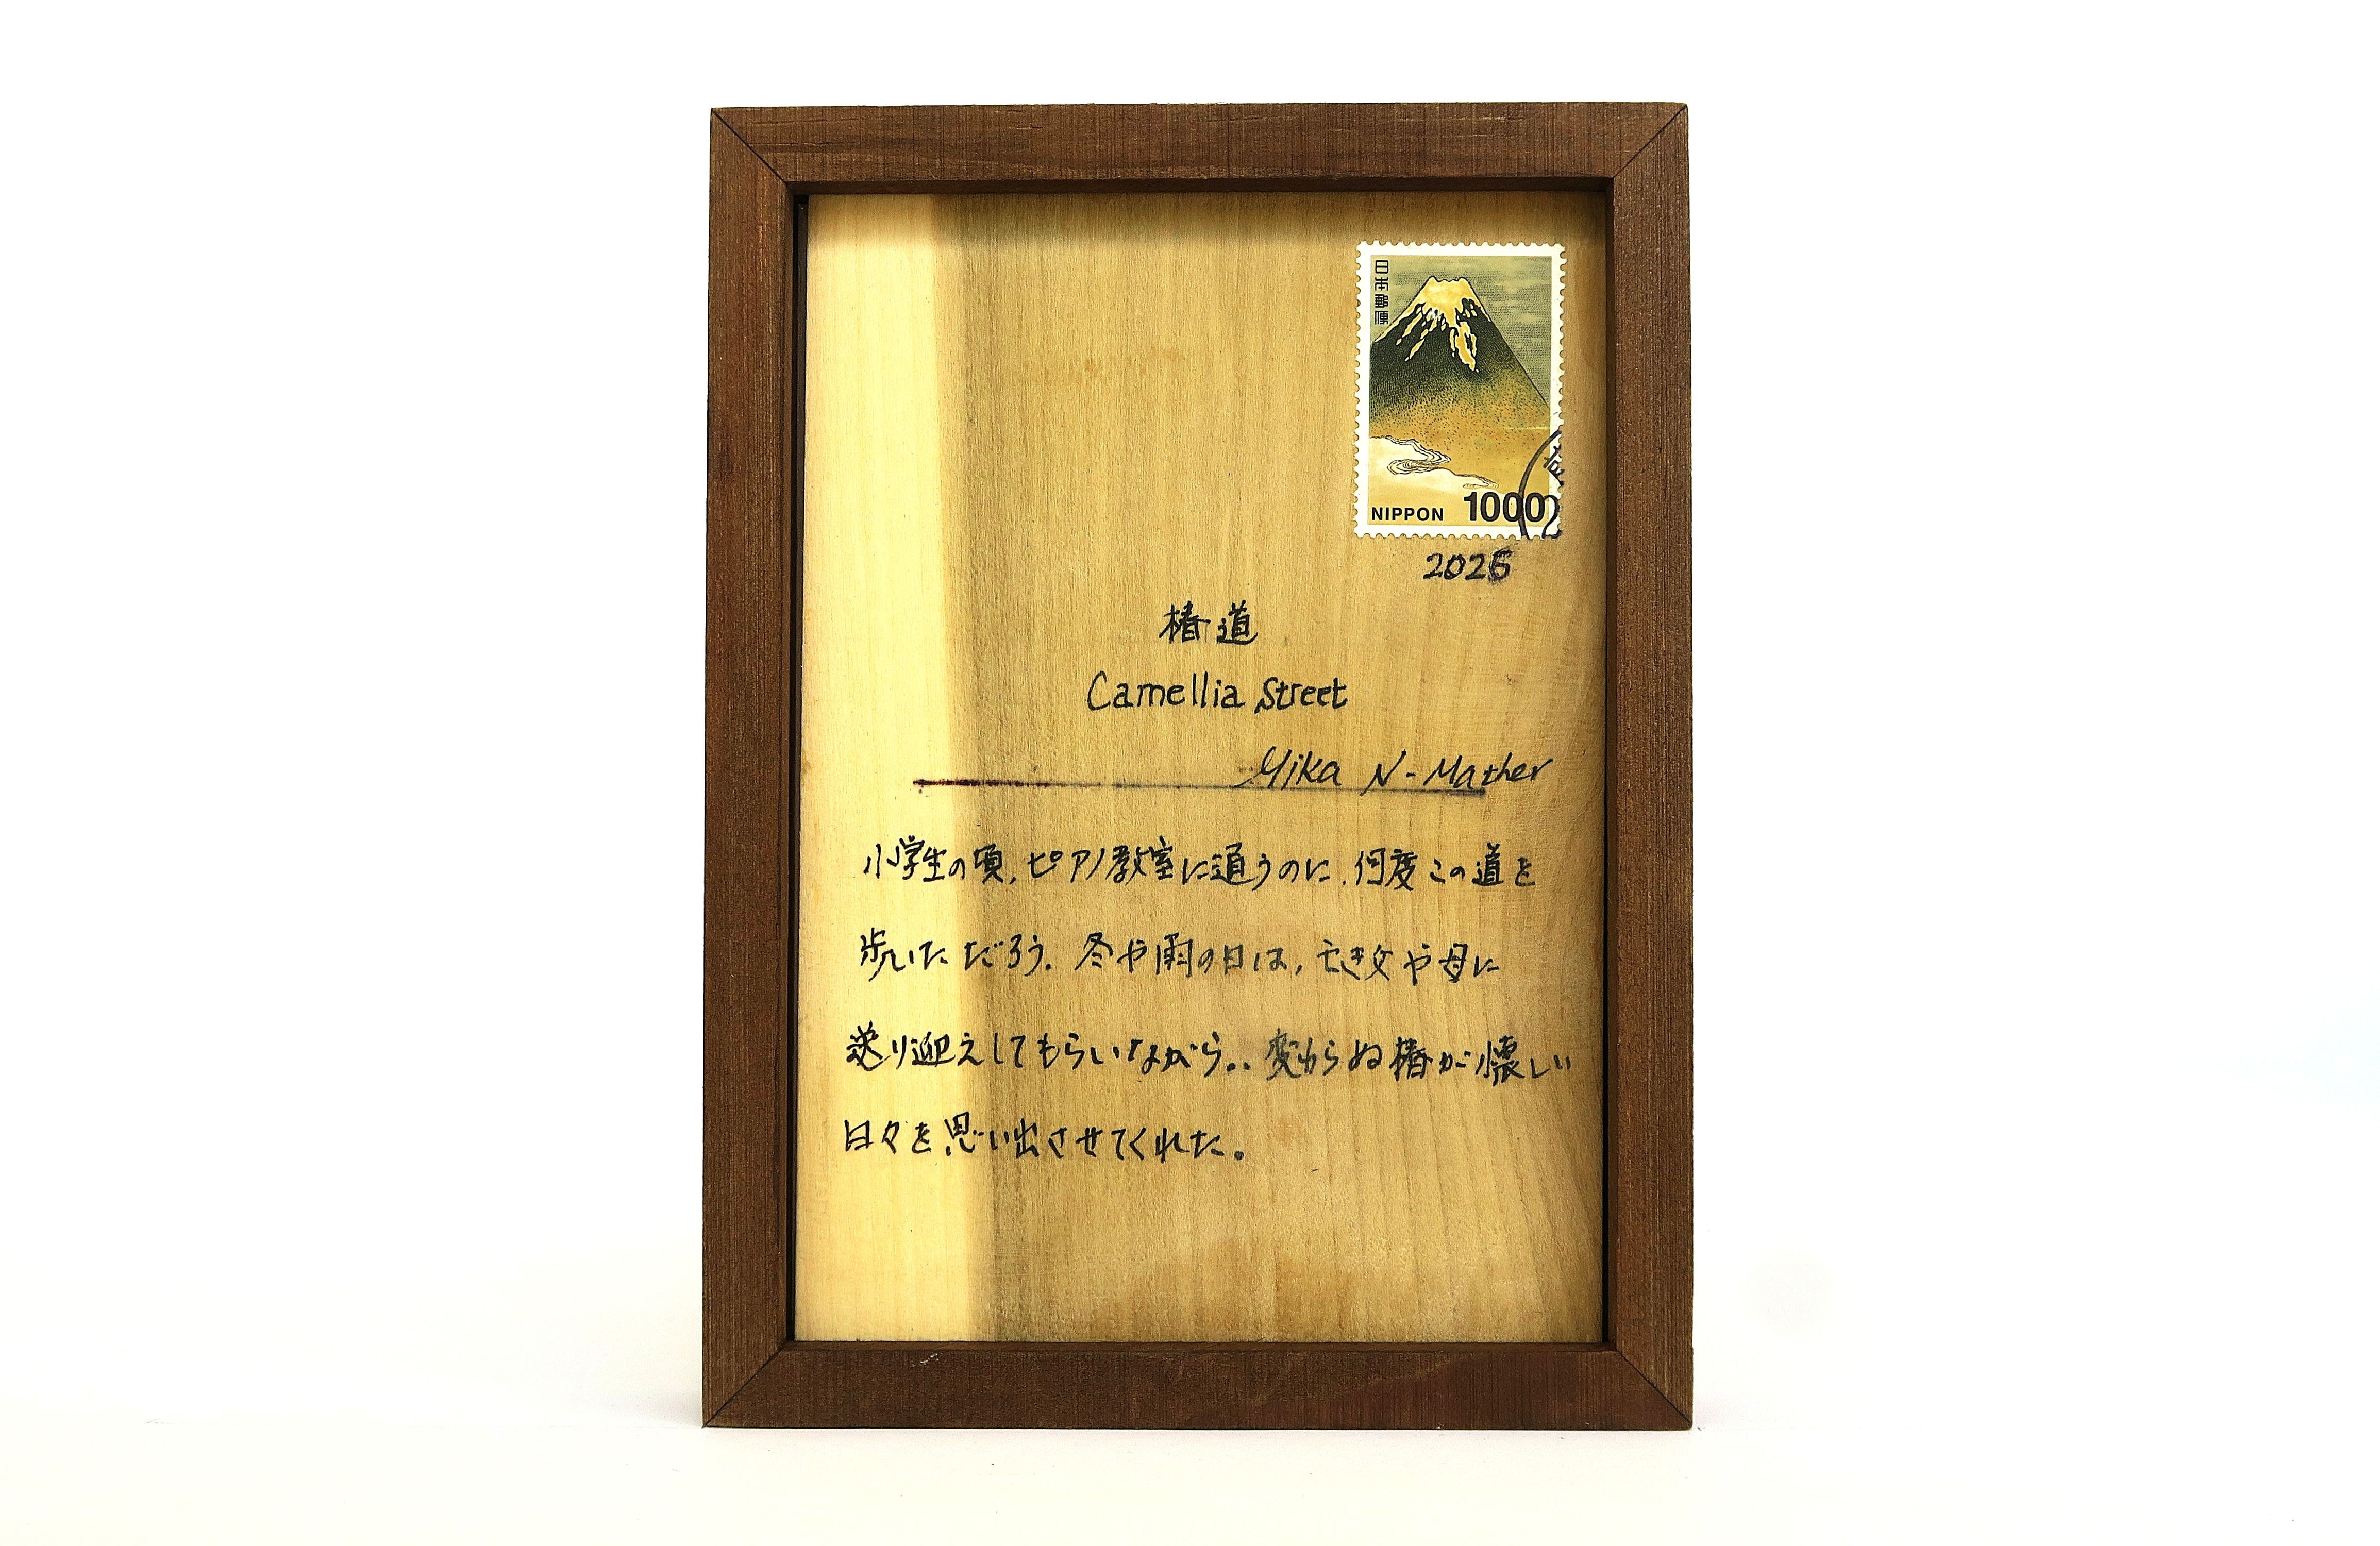 日本郵便
NIPPON 1000
2025
椿道
Camellia Street
Mika N-Mather
小学生の頃、ピアノ教室に通うのに、何度この道を
歩いただろう。冬や雨の日は、亡き父や母に
送り迎えしてもらいながら。。変わらぬ椿が懐しい
日々を思い出させてくれた。